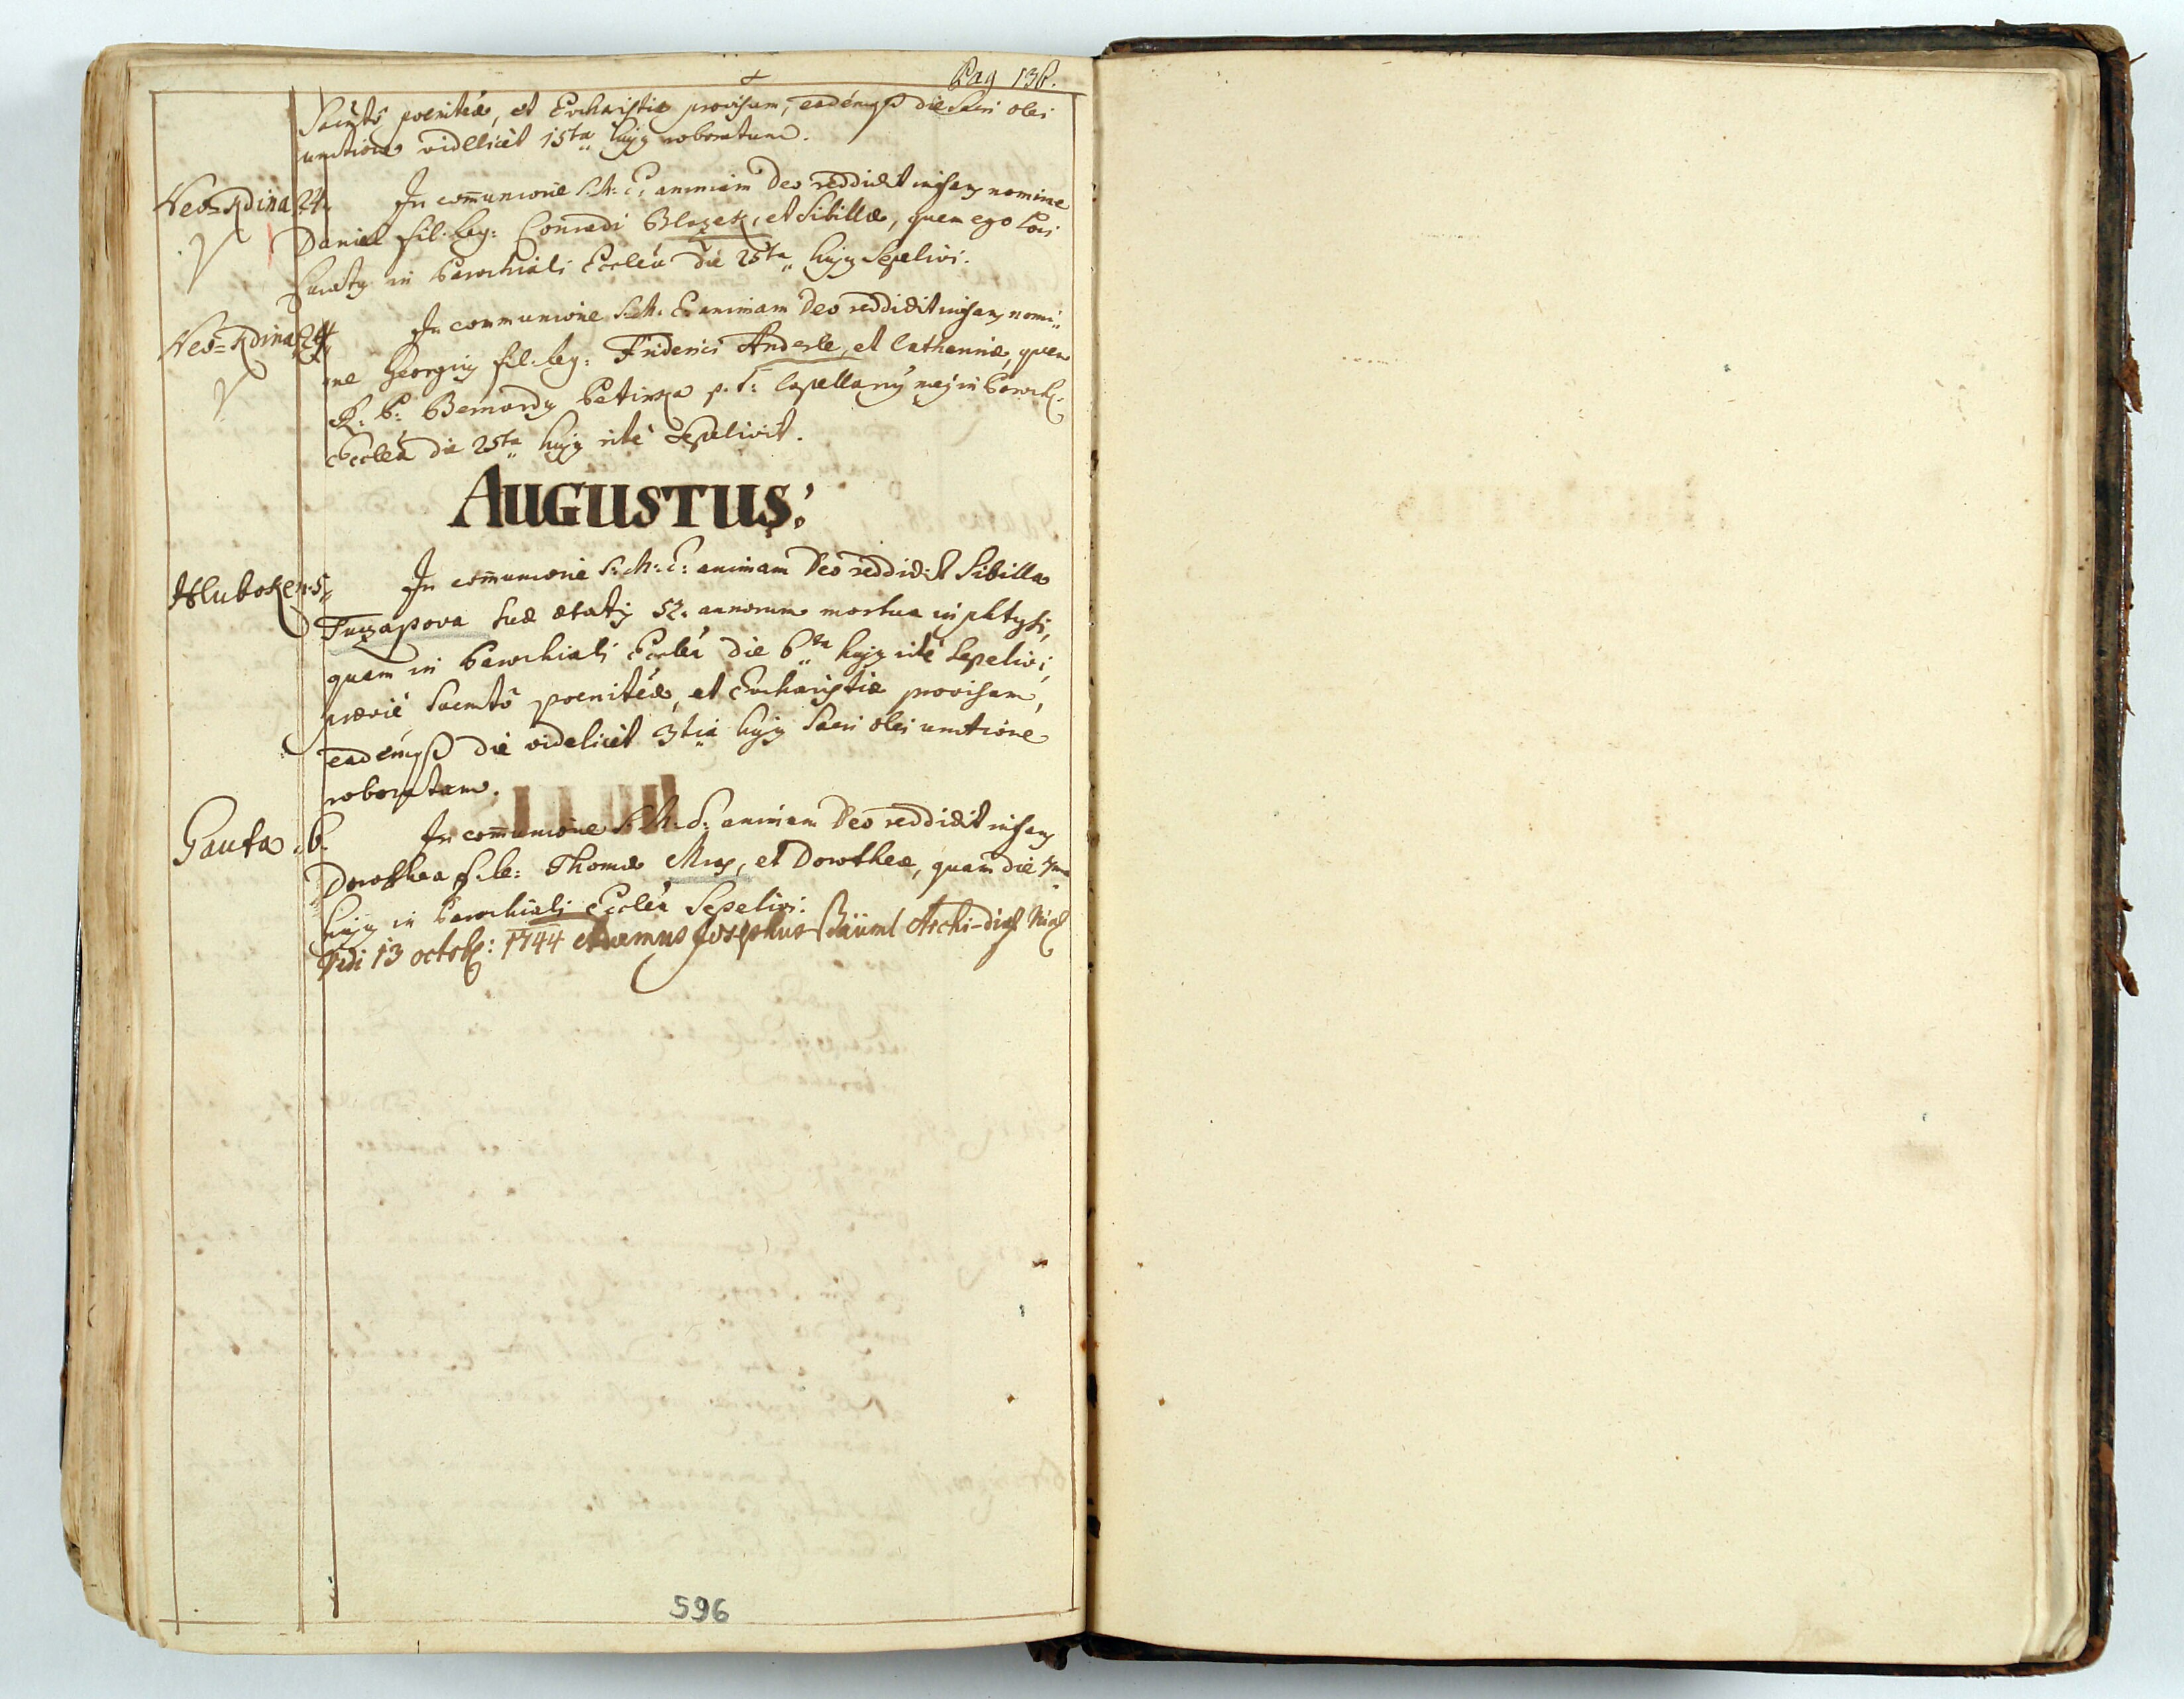 Pag 138.
Sacmtô poenitéæ, et Eucharistiæ provisum, eadémqß die Sacri olei
unctione vidllicèt 15ta hujg roboratum.
Neo=Kdina 24. In com̄unione S: M: E: animam Deo reddidit infans nomine
Daniel fil: leg: Conradi Blazek, et Sibillæ, quem ego Loci
Curatg in Parochiali Eccleâ die 25ta hujg Sepelivi.
Neo=Kdina 24 In communione S: M: E: animam Deo reddidit infans nomi
ne Georgig fil: leg: Friderici Anderle, et Catharinæ, quem
R: P: Bernardg Petirka p. t: Capellang meg in Paroch:
Eccleâ die 25ta hujg ritè Sepelivit.
AUGUSTUS.
Hluboken. 5. In com̄unione S: M: E: animam Deo reddidit Sibilla
Tuczapova suæ ætatis 52. annorum mortua in phtysi,
quam in Parochiali Eccleâ die 6ta hujg ritè Sepelivi,
præviè Sacmtô poenitéæ, et Eucharistiæ provisam,
eadémqß die videlicèt 3tia hujg Sacri olei unctione
roboratam.
Pauta. 6. In com̄unione S: M: E: animam Deo reddidit infans
Dorothea f: le: Thomæ Mraz, et Dorotheæ, quam die 7ma
hujg in Parochiali Eccleâ Sepelivi.
Vidi 13 octobr: 1744 Josephus Bäuml Archi-
596